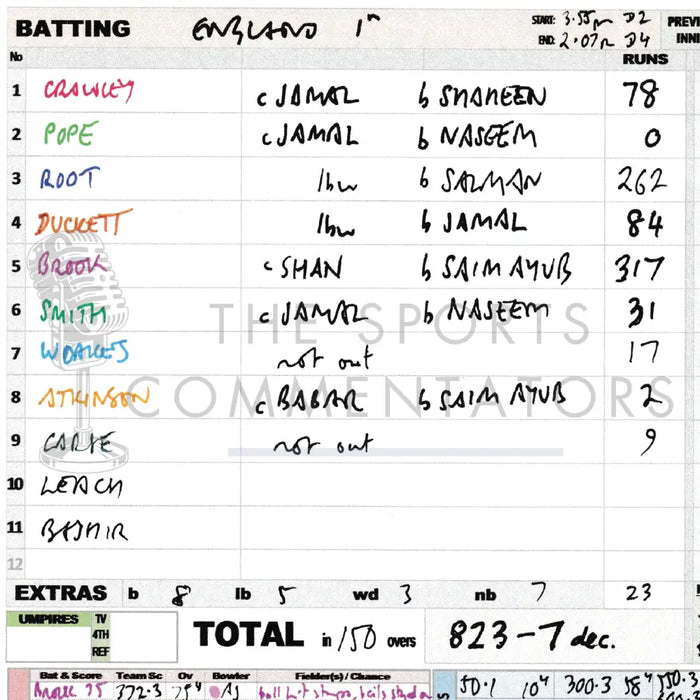 BATTING ENGLAND 1ⁿ START: 3.55pm D2 PREVI
END: 2.07pm D4 INNI
No RUNS
1 CRAWLEY c JAMAL b SHAHEEN 78
2 POPE c JAMAL b NASEEM 0
3 ROOT lbw b SALMAN 262
4 DUCKETT lbw b JAMAL 84
5 BROOK c SHAN b SAIM AYUB 317
6 SMITH c JAMAL b NASEEM 31
THE SPORTS
7 WOAKES not out 17
8 ATKINSON c BABAR b SAIM AYUB 2
COMMENTATORS
9 CARSE not out 9
10 LEACH
11 BASHIR
12
EXTRAS b 8 lb 5 wd 3 nb 7 23
UMPIRES TV
4TH
REF
TOTAL in 150 overs 823-7 dec.
Bat & Score Team Sc Ov Bowler Fielder(s) / Chance
Brook 75 372-3 AJ ball hit stumps, bails stayed on
50.1 300.3